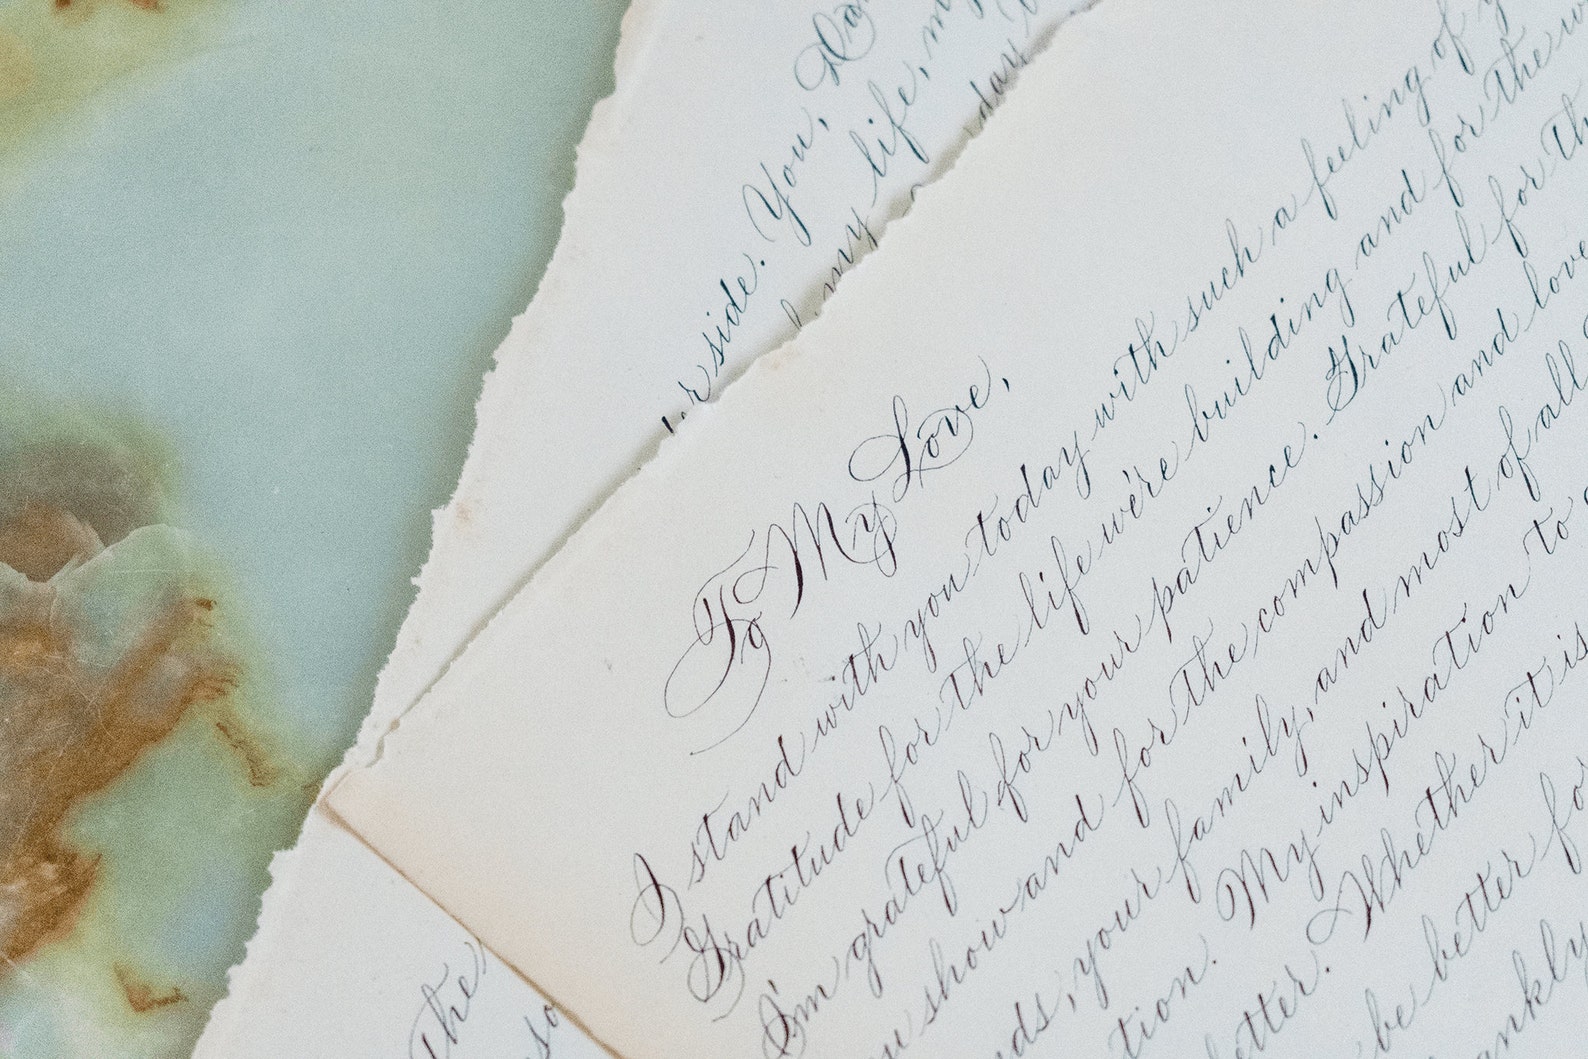 You,
side. You,
my life,
day
To My Love,
I stand with you today with such a feeling of
Gratitude for the life we're building and for the
I'm grateful for your patience. Grateful for
show and for the compassion and love
your family, and most of all
tion. My inspiration to
etter. Whether it is
be better for
The
so